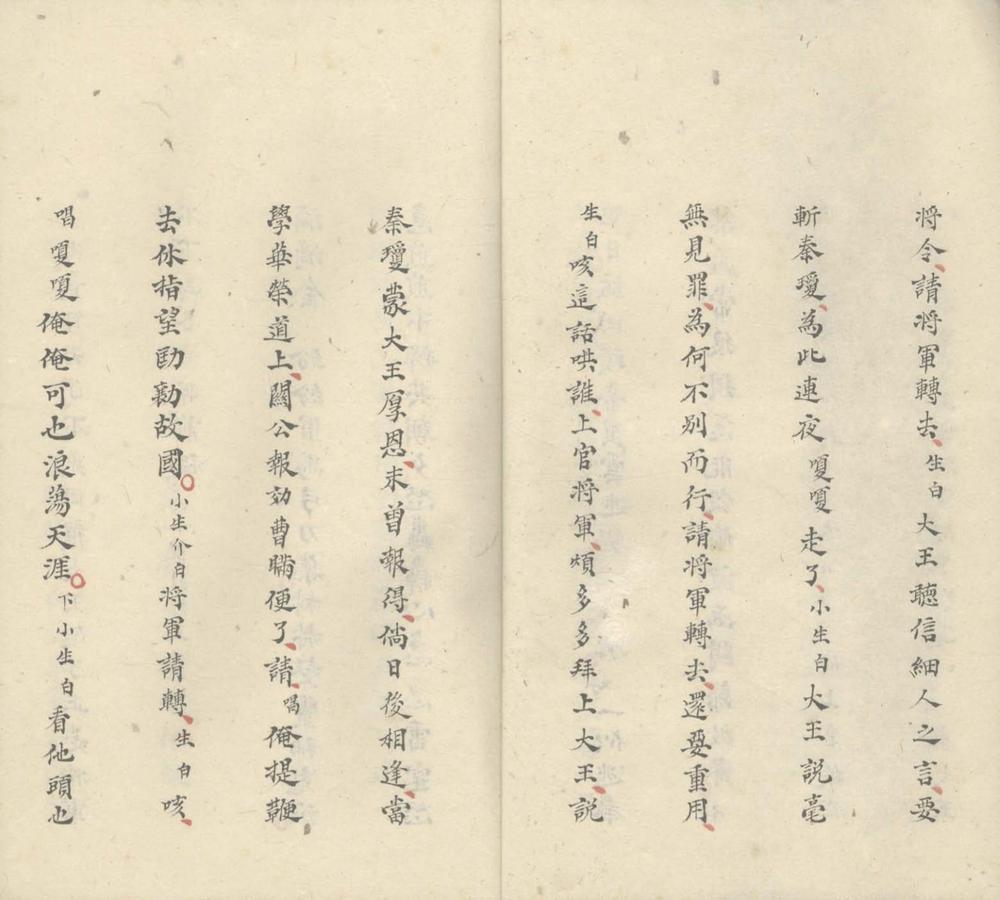 将令、請将軍轉去、生白大王聽信細人之言、要
斬秦瓊、為此連夜嗄嗄走了、小生白大王説毫
無見罪、為何不别而行、請将軍轉去、還要重用、
生白咳這話哄誰、上官将軍、煩多多拜上大王、説
秦瓊蒙大王厚恩、未曽報得、倘日後相逢、當
學華榮道上、關公報効曹瞞便了、請、唱俺提鞭
去休指望勖勷故國○小生介白将軍請轉、生白咳、
唱嗄嗄俺俺可也浪蕩天涯○下小生白看他頭也